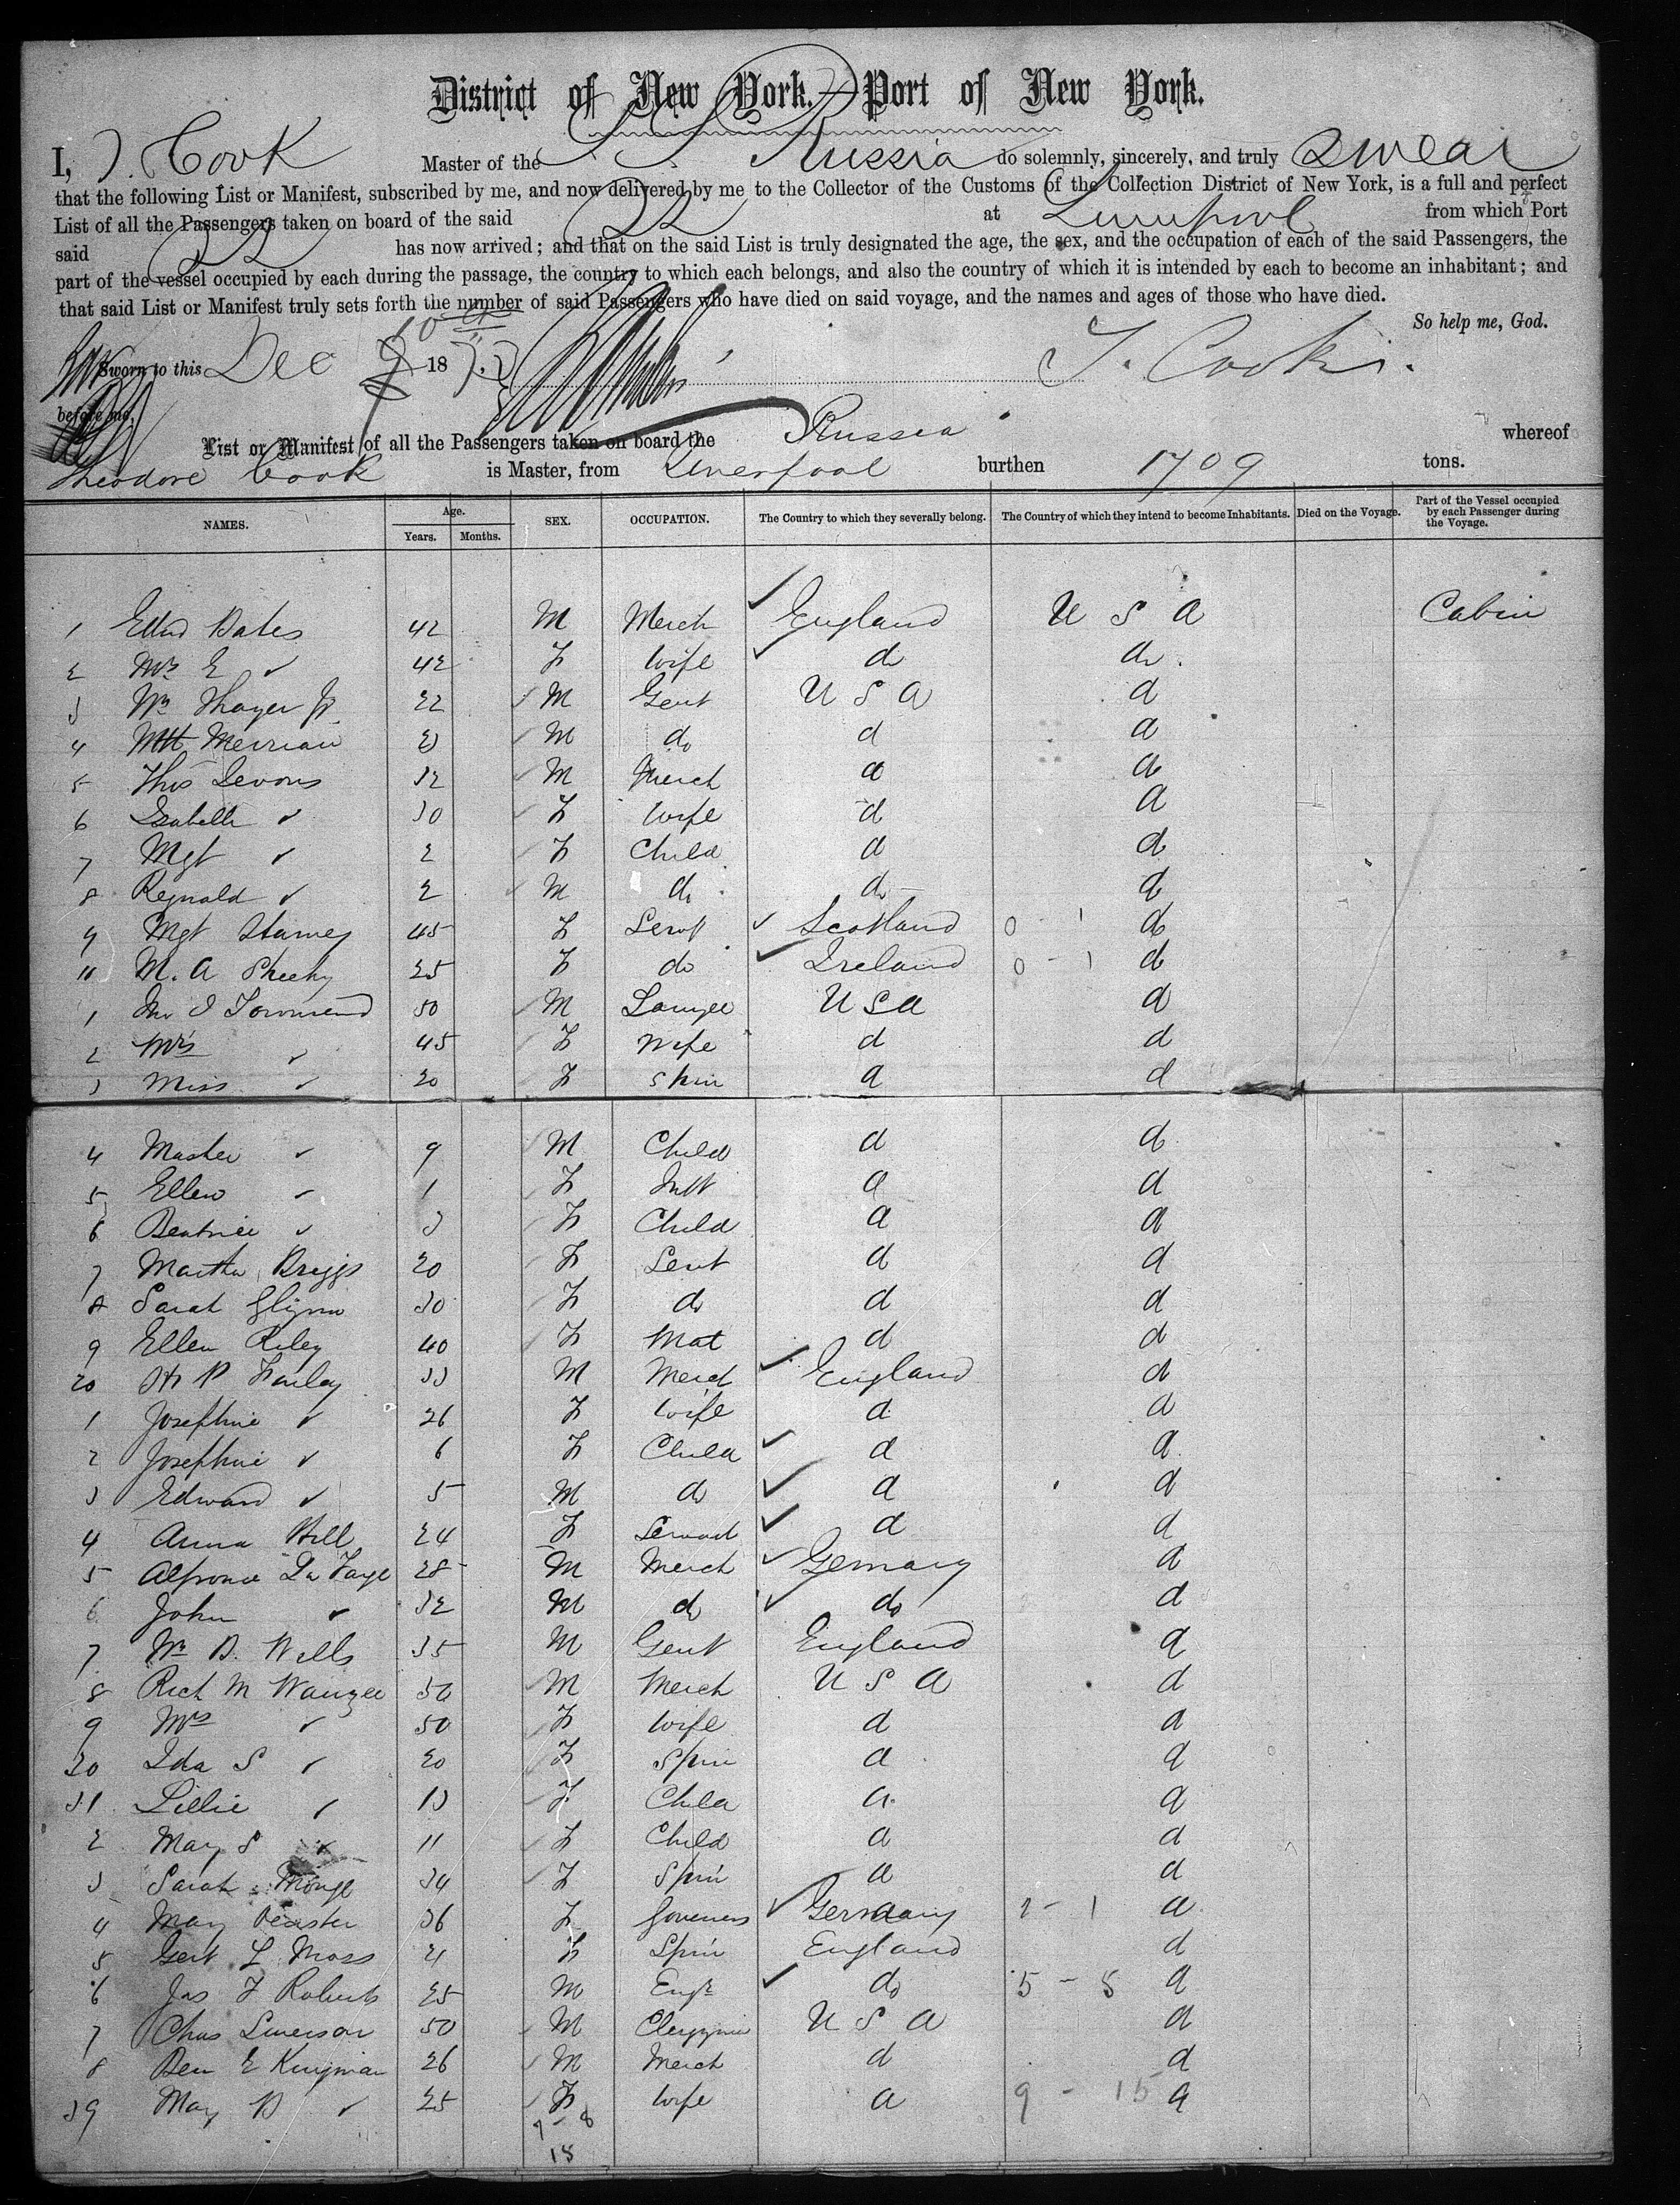 District of New York.—Port of New York.
I, T. Cook Master of the S. S. Russia do solemnly, sincerely, and truly swear
that the following List or Manifest, subscribed by me, and now delivered by me to the Collector of the Customs of the Collection District of New York, is a full and perfect
List of all the Passengers taken on board of the said SS at Liverpool from which Port
said SS has now arrived; and that on the said List is truly designated the age, the sex, and the occupation of each of the said Passengers, the
part of the vessel occupied by each during the passage, the country to which each belongs, and also the country of which it is intended by each to become an inhabitant; and
that said List or Manifest truly sets forth the number of said Passengers who have died on said voyage, and the names and ages of those who have died.
So help me, God.
Sworn to this Dec 18 T. Cook
before me,
List or Manifest of all the Passengers taken on board the Russia whereof
Theodore Cook is Master, from Liverpool burthen 1709 tons.
NAMES. Age. Years. Months. SEX. OCCUPATION. The Country to which they severally belong. The Country of which they intend to become Inhabitants. Died on the Voyage. Part of the Vessel occupied by each Passenger during the Voyage.
1 Edwd Bates 42 M Merch England U S A Cabin
2 Mrs E ✓ 42 F Wife do do
3 Wm Thayer Jr 22 M Gent U S A d
4 Merriam 23 M do d d
5 Thos 32 M Merch d do
6 Isabella ✓ 30 F Wife d d
7 Mgt ✓ 2 F Child d d
8 Reynald ✓ 2 M do do d
9 Mgt 45 F Servt Scotland 0 - 1 d
10 M. A Sheehy 25 F do Ireland 0 - 1 d
1 Jno J Townsend 50 M Lawyer U S A d
2 Mrs ✓ 45 F Wife d d
3 Miss ✓ 20 F Spin d d
4 Master ✓ 9 M Child d d
5 Ellen ✓ 1 F Inft d d
6 Beatrice ✓ 3 F Child d d
7 Martha Briggs 20 F Servt d d
8 Sarah Glynn 30 F do d d
9 Ellen Riley 40 F Mat d d
20 H P Farley 33 M Merch England d
1 Josephine ✓ 26 F Wife d d
2 Josephine ✓ 6 F Child d d
3 Edward ✓ 5 M do d d
4 Anna Hill 24 F Servant d d
5 Alfronce La Farge 28 M Merch Germany d
6 John ✓ 32 M do do d
7 Wm B. Wells 35 M Gent England d
8 Rich M Wanzee 50 M Merch U S A d
9 Mrs ✓ 50 F Wife d d
30 Ida S ✓ 20 F Spin d d
31 Lillie ✓ 13 F Child d d
2 May S ✓ 11 F Child d d
3 Sarah 34 F Spin d d
4 May 36 F Governess Germany 1 - 1 d
5 Gert L Moss 21 F Spin England d
6 Jas F Roberts 25 M Engr do 5 - 5 d
7 Chas Emerson 50 M Clergyman U S A d
8 Ben E Kingman 26 M Merch d d
39 May B ✓ 25 F Wife d 9 - 15 d
7 - 8
15